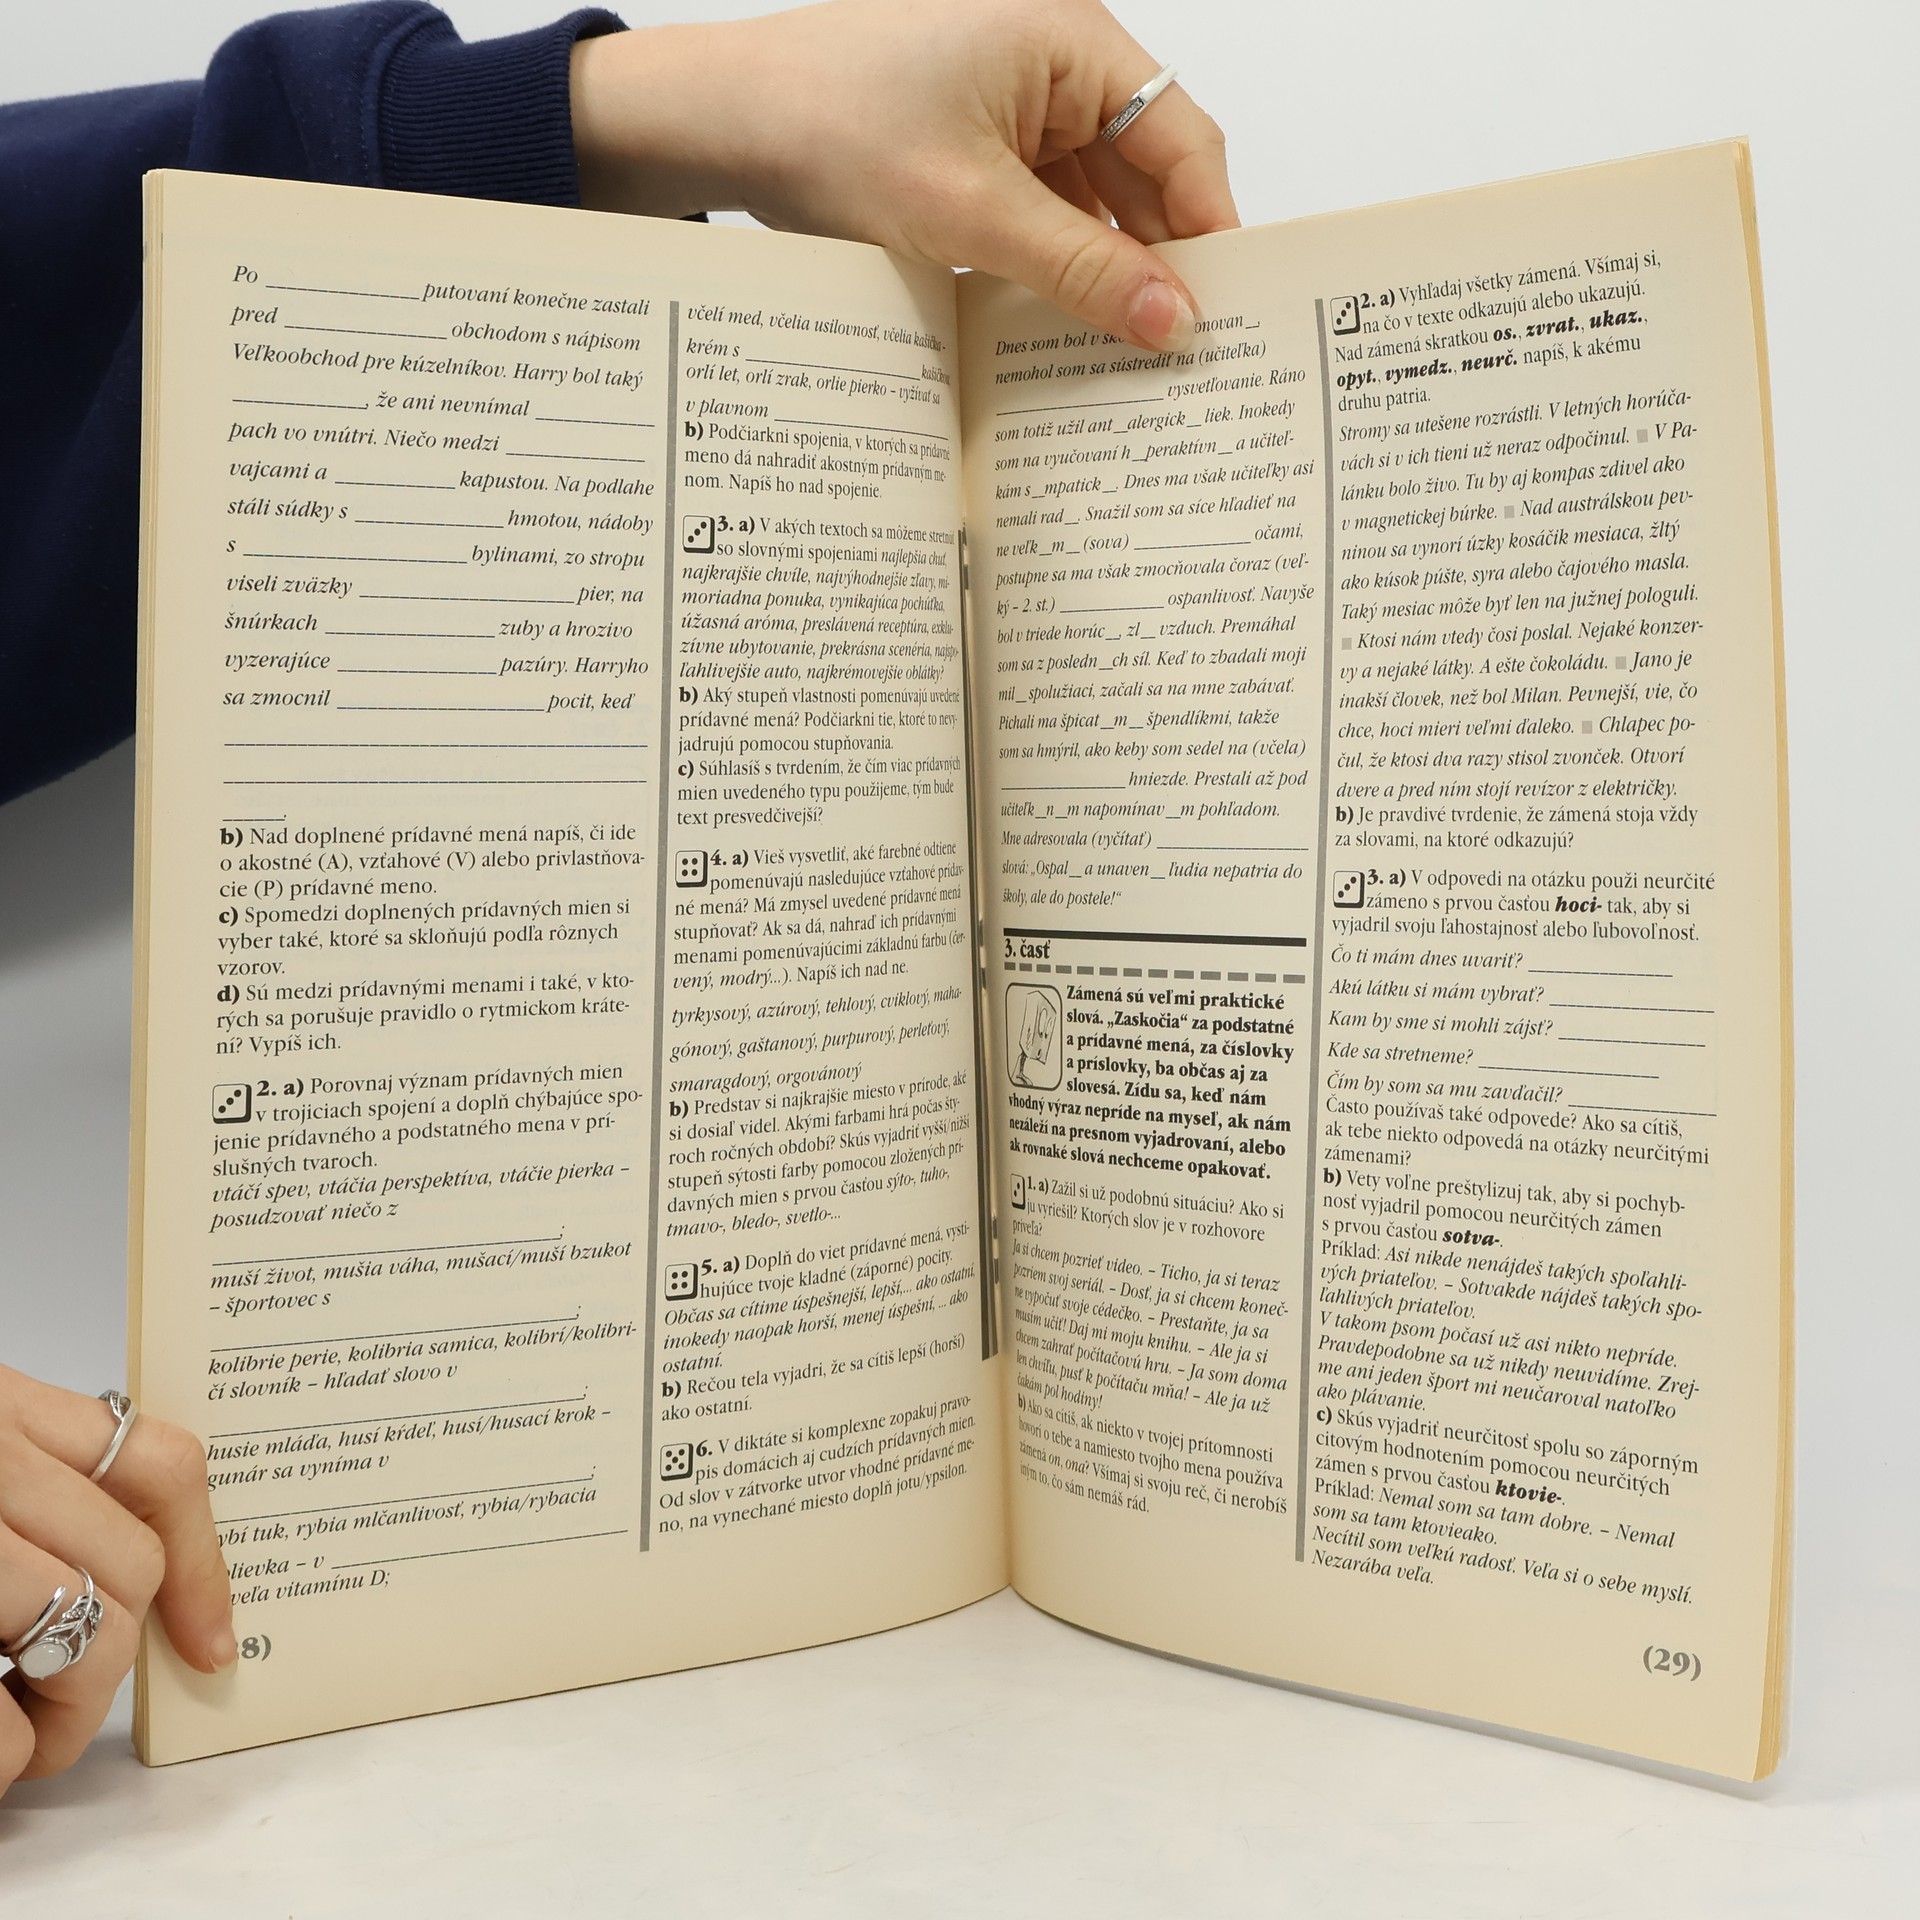 Po ______ putovaní konečne zastali
pred ______ obchodom s nápisom
Veľkoobchod pre kúzelníkov. Harry bol taký
______, že ani nevnímal ______
pach vo vnútri. Niečo medzi ______
vajcami a ______ kapustou. Na podlahe
stáli súdky s ______ hmotou, nádoby
s ______ bylinami, zo stropu
viseli zväzky ______ pier, na
šnúrkach ______ zuby a hrozivo
vyzerajúce ______ pazúry. Harryho
sa zmocnil ______ pocit, keď
______
______
______.
b) Nad doplnené prídavné mená napíš, či ide
o akostné (A), vzťahové (V) alebo privlastňova-
cie (P) prídavné meno.
c) Spomedzi doplnených prídavných mien si
vyber také, ktoré sa skloňujú podľa rôznych
vzorov.
d) Sú medzi prídavnými menami i také, v kto-
rých sa porušuje pravidlo o rytmickom kráte-
ní? Vypíš ich.
2. a) Porovnaj význam prídavných mien
v trojiciach spojení a doplň chýbajúce spo-
jenie prídavného a podstatného mena v prí-
slušných tvaroch.
vtáčí spev, vtáčia perspektíva, vtáčie pierka –
posudzovať niečo z
______;
muší život, mušia váha, mušací/muší bzukot
– športovec s
______;
kolibrie perie, kolibria samica, kolibrí/kolibri-
čí slovník – hľadať slovo v
______;
husie mláďa, husí kŕdeľ, husí/husací krok –
gunár sa vyníma v
______;
ybí tuk, rybia mlčanlivosť, rybia/rybacia
lievka – v ______
veľa vitamínu D;
8)
včelí med, včelia usilovnosť, včelia kašička –
krém s ______ kašičkou
orlí let, orlí zrak, orlie pierko – vyžívať sa
v plavnom ______
b) Podčiarkni spojenia, v ktorých sa prídavné
meno dá nahradiť akostným prídavným me-
nom. Napíš ho nad spojenie.
3. a) V akých textoch sa môžeme stretnúť
so slovnými spojeniami najlepšia chuť,
najkrajšie chvíle, najvýhodnejšie zľavy, mi-
moriadna ponuka, vynikajúca pochúťka,
úžasná aróma, preslávená receptúra, exklu-
zívne ubytovanie, prekrásna scenéria, najspo-
ľahlivejšie auto, najkrémovejšie oblátky?
b) Aký stupeň vlastnosti pomenúvajú uvedené
prídavné mená? Podčiarkni tie, ktoré to nevy-
jadrujú pomocou stupňovania.
c) Súhlasíš s tvrdením, že čím viac prídavných
mien uvedeného typu použijeme, tým bude
text presvedčivejší?
4. a) Vieš vysvetliť, aké farebné odtiene
pomenúvajú nasledujúce vzťahové prídav-
né mená? Má zmysel uvedené prídavné mená
stupňovať? Ak sa dá, nahraď ich prídavnými
menami pomenúvajúcimi základnú farbu (čer-
vený, modrý...). Napíš ich nad ne.
tyrkysový, azúrový, tehlový, cviklový, maha-
gónový, gaštanový, purpurový, perleťový,
smaragdový, orgovánový
b) Predstav si najkrajšie miesto v prírode, aké
si dosiaľ videl. Akými farbami hrá počas šty-
roch ročných období? Skús vyjadriť vyšší/nižší
stupeň sýtosti farby pomocou zložených prí-
davných mien s prvou časťou sýto-, tuho-,
tmavo-, bledo-, svetlo-...
5. a) Doplň do viet prídavné mená, vysti-
hujúce tvoje kladné (záporné) pocity.
Občas sa cítime úspešnejší, lepší,... ako ostatní,
inokedy naopak horší, menej úspešní, ... ako
ostatní.
b) Rečou tela vyjadri, že sa cítiš lepší (horší)
ako ostatní.
6. V diktáte si komplexne zopakuj pravo-
pis domácich aj cudzích prídavných mien.
Od slov v zátvorke utvor vhodné prídavné me-
no, na vynechané miesto doplň jotu/ypsilon.
Dnes som bol v onovan__,
nemohol som sa sústrediť na (učiteľka)
______ vysvetľovanie. Ráno
som totiž užil ant__alergick__ liek. Inokedy
som na vyučovaní h__peraktívn__ a učiteľ-
kám s__mpatick__. Dnes ma však učiteľky asi
nemali rad__. Snažil som sa síce hľadieť na
ne veľk__m__ (sova) ______ očami,
postupne sa ma však zmocňovala čoraz (veľ-
ký – 2. st.) ______ ospanlivosť. Navyše
bol v triede horúc__, zl__ vzduch. Premáhal
som sa z posledn__ch síl. Keď to zbadali moji
mil__ spolužiaci, začali sa na mne zabávať.
Pichali ma špicat__m__ špendlíkmi, takže
som sa hmýril, ako keby som sedel na (včela)
______ hniezde. Prestali až pod
učiteľk__n__m napomínav__m pohľadom.
Mne adresovala (vyčítať) ______
slová: „Ospal__ a unaven__ ľudia nepatria do
školy, ale do postele!“
3. časť
Zámená sú veľmi praktické
slová. „Zaskočia“ za podstatné
a prídavné mená, za číslovky
a príslovky, ba občas aj za
slovesá. Zídu sa, keď nám
vhodný výraz nepríde na myseľ, ak nám
nezáleží na presnom vyjadrovaní, alebo
ak rovnaké slová nechceme opakovať.
1. a) Zažil si už podobnú situáciu? Ako si
ju vyriešil? Ktorých slov je v rozhovore
priveľa?
Ja si chcem pozrieť video. – Ticho, ja si teraz
pozriem svoj seriál. – Dosť, ja si chcem koneč-
ne vypočuť svoje cédečko. – Prestaňte, ja sa
musím učiť! Daj mi moju knihu. – Ale ja si
chcem zahrať počítačovú hru. – Ja som doma
len chvíľu, pusť k počítaču mňa! – Ale ja už
čakám pol hodiny!
b) Ako sa cítiš, ak niekto v tvojej prítomnosti
hovorí o tebe a namiesto tvojho mena používa
zámená on, ona? Všímaj si svoju reč, či nerobíš
iným to, čo sám nemáš rád.
2. a) Vyhľadaj všetky zámená. Všímaj si,
na čo v texte odkazujú alebo ukazujú.
Nad zámená skratkou os., zvrat., ukaz.,
opyt., vymedz., neurč. napíš, k akému
druhu patria.
Stromy sa utešene rozrástli. V letných horúča-
vách si v ich tieni už neraz odpočinul. ■ V Pa-
lánku bolo živo. Tu by aj kompas zdivel ako
v magnetickej búrke. ■ Nad austrálskou pev-
ninou sa vynorí úzky kosáčik mesiaca, žltý
ako kúsok púšte, syra alebo čajového masla.
Taký mesiac môže byť len na južnej pologuli.
■ Ktosi nám vtedy čosi poslal. Nejaké konzer-
vy a nejaké látky. A ešte čokoládu. ■ Jano je
inakší človek, než bol Milan. Pevnejší, vie, čo
chce, hoci mieri veľmi ďaleko. ■ Chlapec po-
čul, že ktosi dva razy stisol zvonček. Otvorí
dvere a pred ním stojí revízor z električky.
b) Je pravdivé tvrdenie, že zámená stoja vždy
za slovami, na ktoré odkazujú?
3. a) V odpovedi na otázku použi neurčité
zámeno s prvou časťou hoci- tak, aby si
vyjadril svoju ľahostajnosť alebo ľubovoľnosť.
Čo ti mám dnes uvariť? ______
Akú látku si mám vybrať? ______
Kam by sme si mohli zájsť? ______
Kde sa stretneme? ______
Čím by som sa mu zavďačil? ______
Často používaš také odpovede? Ako sa cítiš,
ak tebe niekto odpovedá na otázky neurčitými
zámenami?
b) Vety voľne preštylizuj tak, aby si pochyb-
nosť vyjadril pomocou neurčitých zámen
s prvou časťou sotva-.
Príklad: Asi nikde nenájdeš takých spoľahli-
vých priateľov. – Sotvakde nájdeš takých spo-
ľahlivých priateľov.
V takom psom počasí už asi nikto nepríde.
Pravdepodobne sa už nikdy neuvidíme. Zrej-
me ani jeden šport mi neučaroval natoľko
ako plávanie.
c) Skús vyjadriť neurčitosť spolu so záporným
citovým hodnotením pomocou neurčitých
zámen s prvou časťou ktovie-.
Príklad: Nemal som sa tam dobre. – Nemal
som sa tam ktovieako.
Necítil som veľkú radosť. Veľa si o sebe myslí.
Nezarába veľa.
(29)